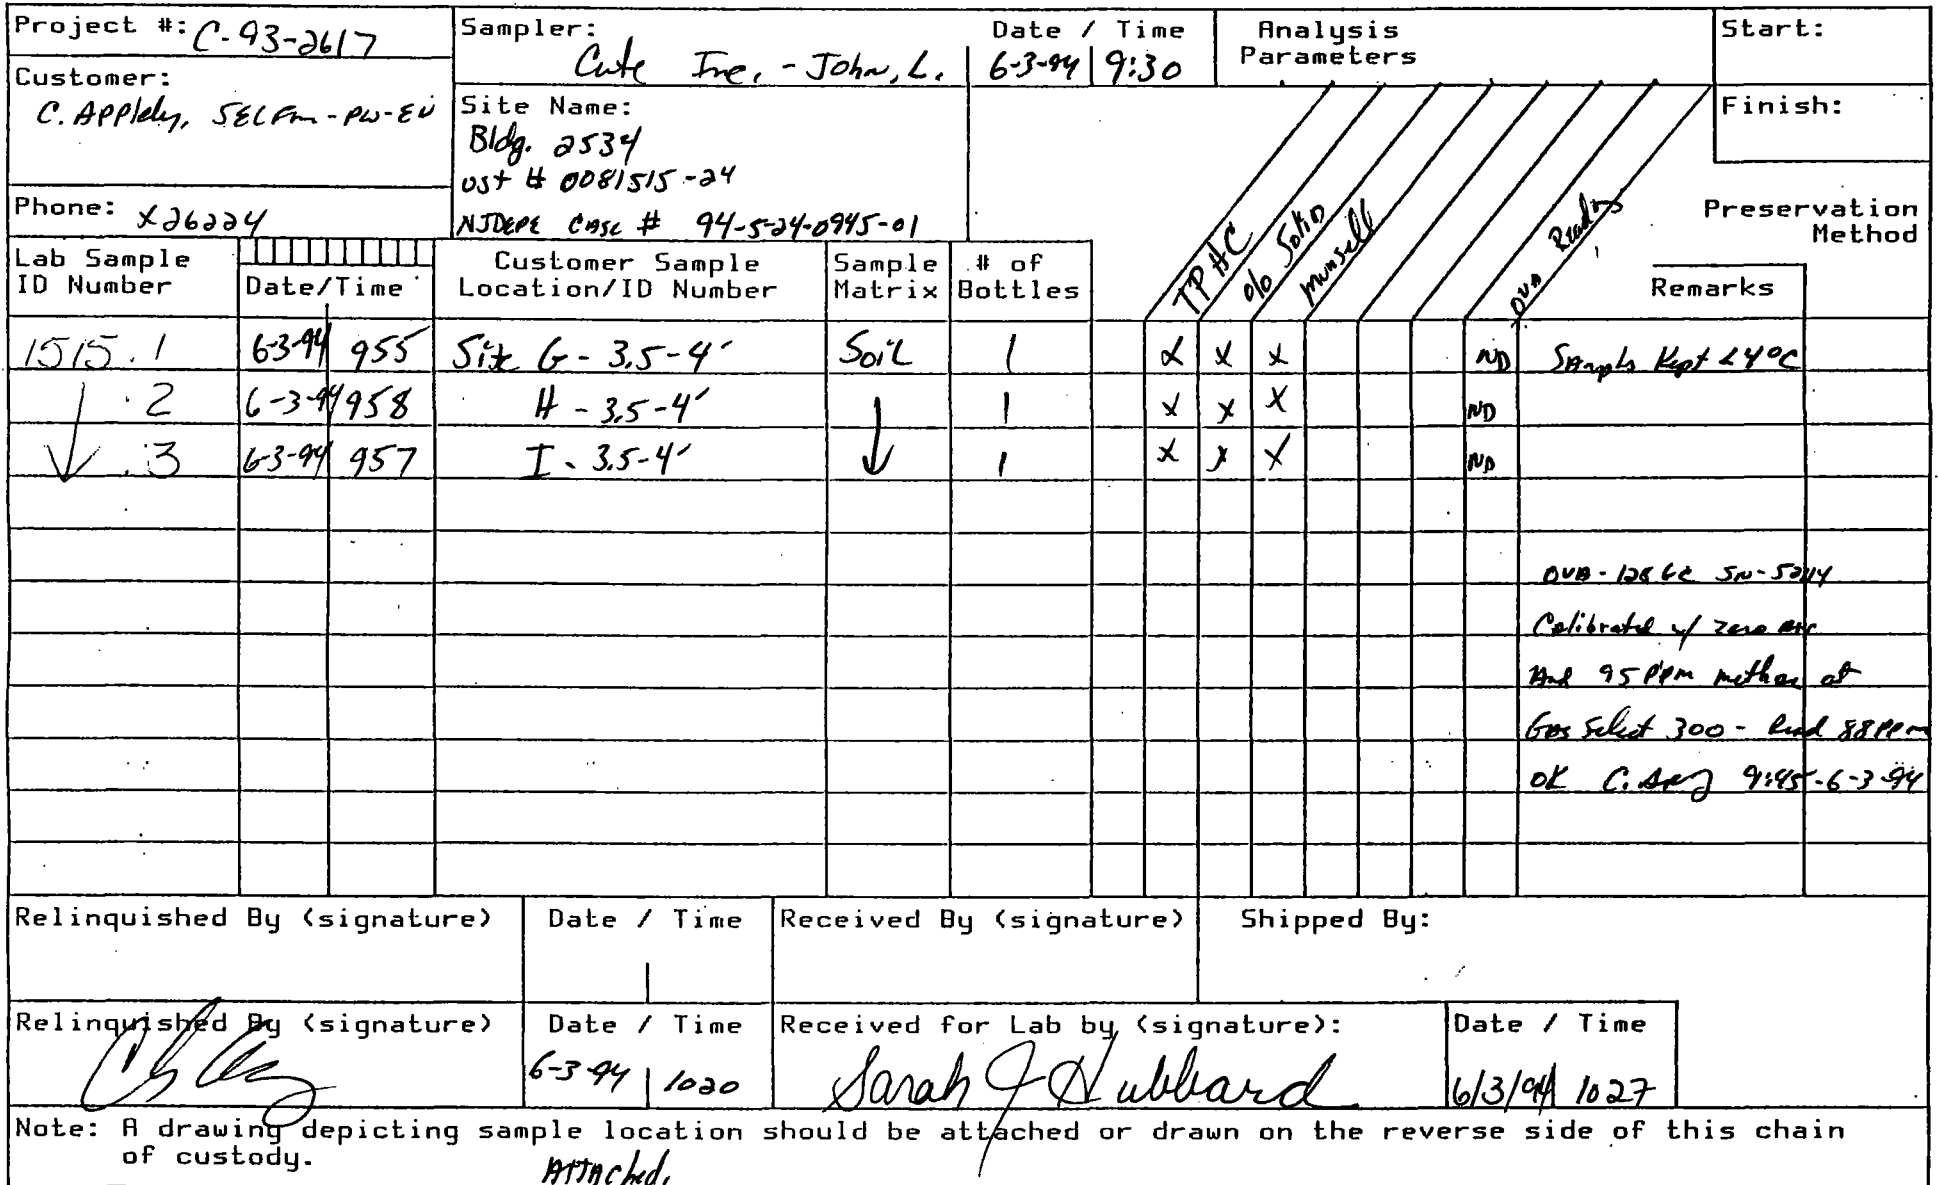 Project #: C-93-2617
Sampler: Cute Inc. - John, L.
Date / Time
6-3-94 9:30
Analysis Parameters
Start:
Customer:
C. Appleby, SELFM-PW-EV
Site Name:
Bldg. 2534
UST # 0081515-24
NJDEPE Case # 94-5-24-0945-01
Finish:
Phone: x26224
Preservation Method
Lab Sample ID Number
Date/Time
Customer Sample Location/ID Number
Sample Matrix
# of Bottles
TPHC
% Solid
munsell
OVA Readings
Remarks
1515.1 6-3-94 955 Site G - 3.5-4' Soil 1 x x x ND Samples Kept <4°C
.2 6-3-94 958 H - 3.5-4' 1 x x x ND
.3 6-3-94 957 I - 3.5-4' 1 x x x ND
OVA-128 GC SN-5244
Calibrated w/ zero air
And 95 ppm methane at
Gas Select 300 - Read 88 ppm
OK C. 9:45-6-3-94
Relinquished By (signature)
Date / Time
Received By (signature)
Shipped By:
Relinquished By (signature)
Date / Time
6-3-94 1020
Received for Lab by (signature):
Sarah J Hubbard
Date / Time
6/3/94 1027
Note: A drawing depicting sample location should be attached or drawn on the reverse side of this chain
of custody.
Attached.